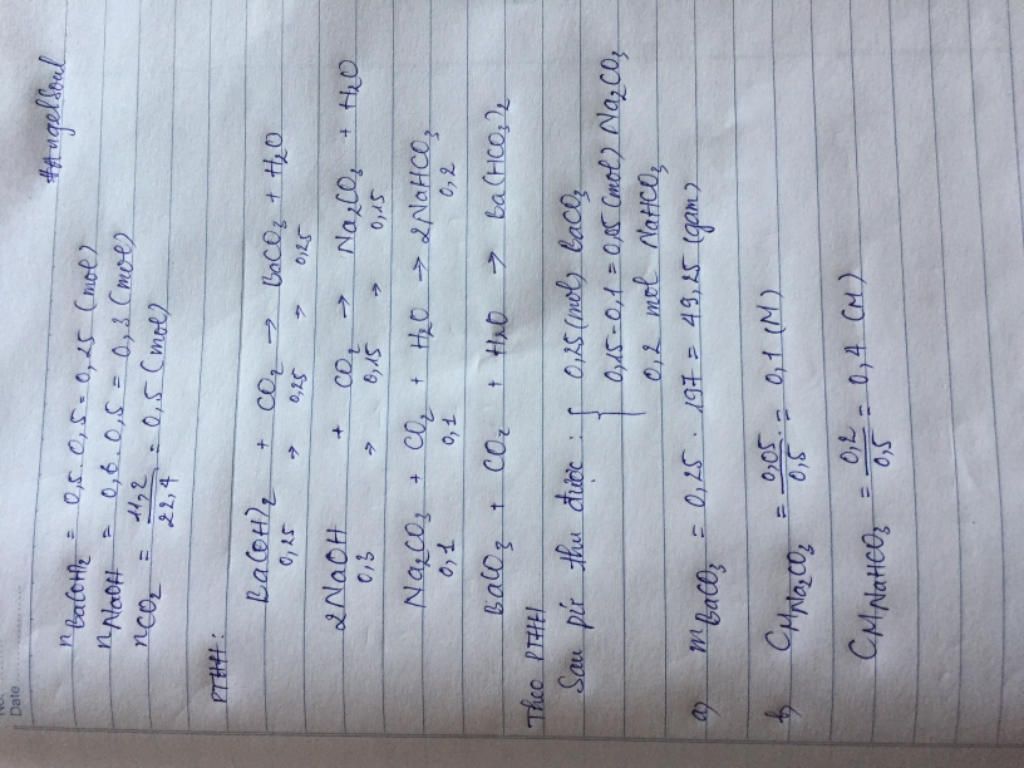 No.
Date
#Angelsoul
nBa(OH)2 = 0,5 . 0,5 = 0,25 (mol)
nNaOH = 0,6 . 0,5 = 0,3 (mol)
nCO2 = 11,2/22,4 = 0,5 (mol)
PTHH:
Ba(OH)2 + CO2 → BaCO3 + H2O
0,25 → 0,25 → 0,25
2NaOH + CO2 → Na2CO3 + H2O
0,3 → 0,15 → 0,15
Na2CO3 + CO2 + H2O → 2NaHCO3
0,1 0,1 0,2
BaCO3 + CO2 + H2O → Ba(HCO3)2
Theo PTHH
Sau pứ thu được : { 0,25 (mol) BaCO3
0,15 - 0,1 = 0,05 (mol) Na2CO3
0,2 mol NaHCO3
a) mBaCO3 = 0,25 . 197 = 49,25 (gam)
b) CMNa2CO3 = 0,05/0,5 = 0,1 (M)
CMNaHCO3 = 0,2/0,5 = 0,4 (M)